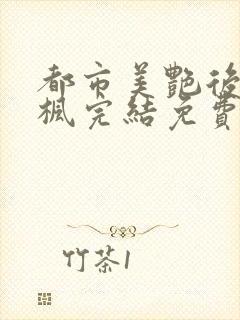 都市美艷後
楓完結免費
竹茶1